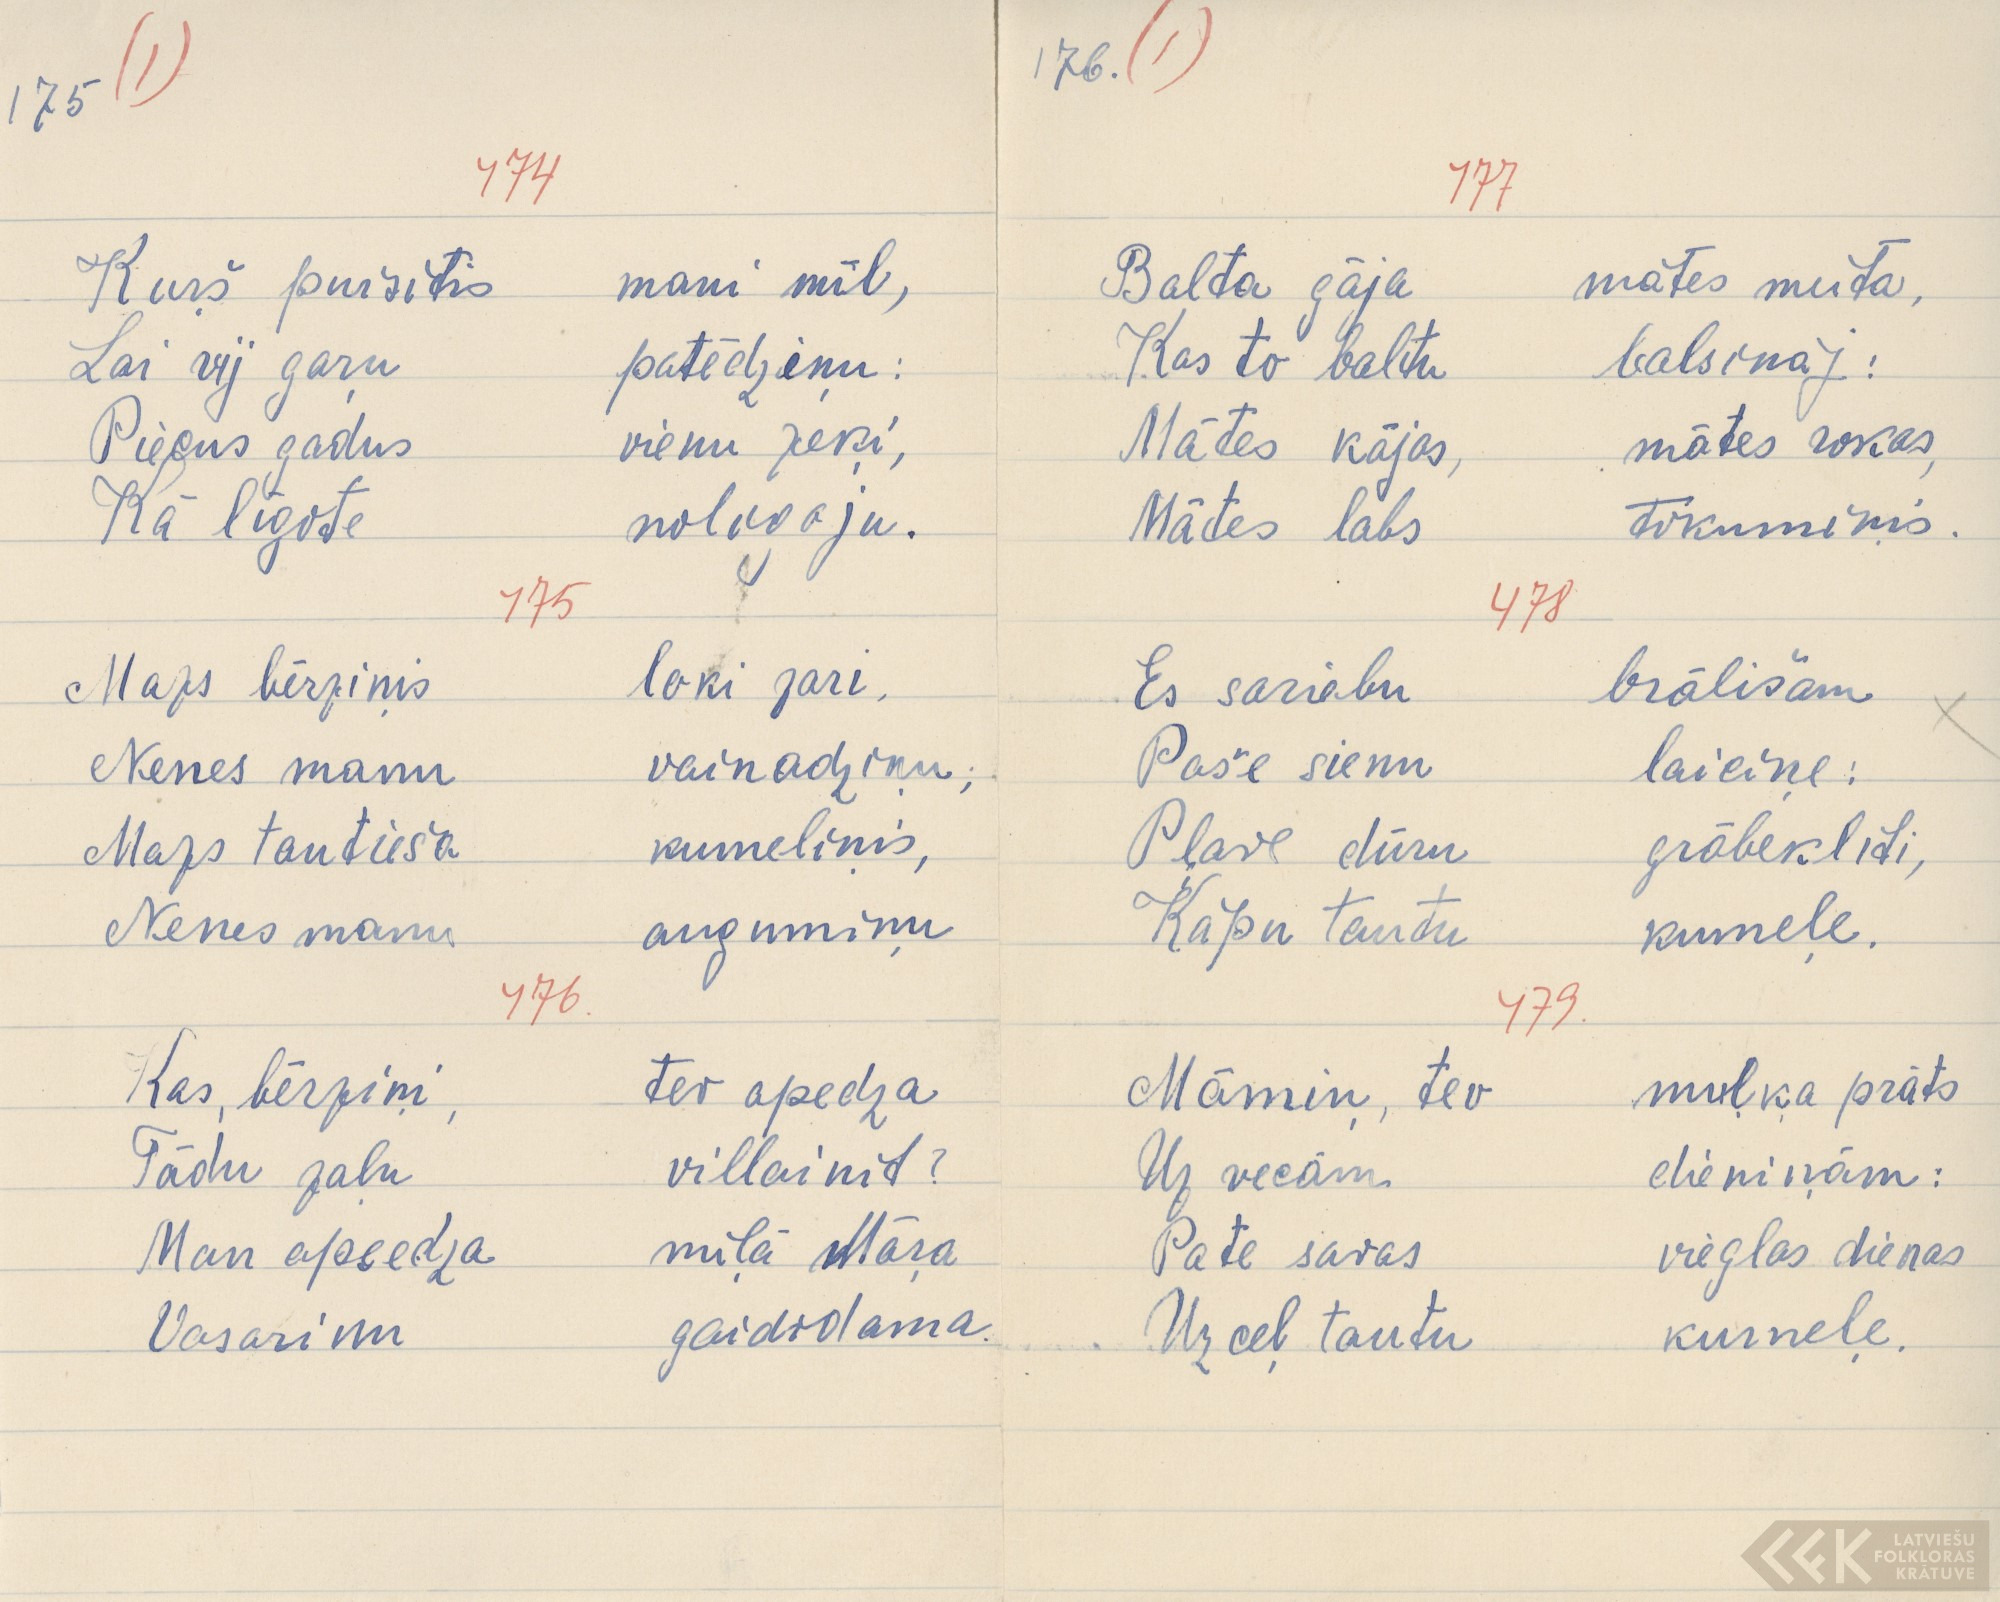 175 (1)
474
Kuŗš puisitis mani mīl,
Lai vij gaŗu patēdziņu:
Piecus gadus vienu zeķi,
Kā līgote nolvgoju.
475
Mazs bērziņis loki zari,
Nenes manu vainadziņu;
Mazs tautieša kumeliņis,
Nenes manu augumiņu
476.
Kas, bērziņi, tev apedza
Tādu zaļu villainit?
Man apsedza miļā Māŗa
Vasariņu gaididama.
176. (1)
477
Balta gāja mātes meita,
Kas to baltu balsināj:
Mātes kājas, mātes rokas,
Mātes labs tikumiņis.
478
Es sariebu brālišam
Pašē sienu laiciņe:
Pļavē dūru grābekliti,
Kāpu tautu kumeļe.
479.
Māmiņ, tev muļķa prāts
Uz vecām dieniņām:
Pate savas vieglas dienas
Uzceļ tautu kumeļe.
LATVIEŠU
FOLKLORAS
KRĀTUVE